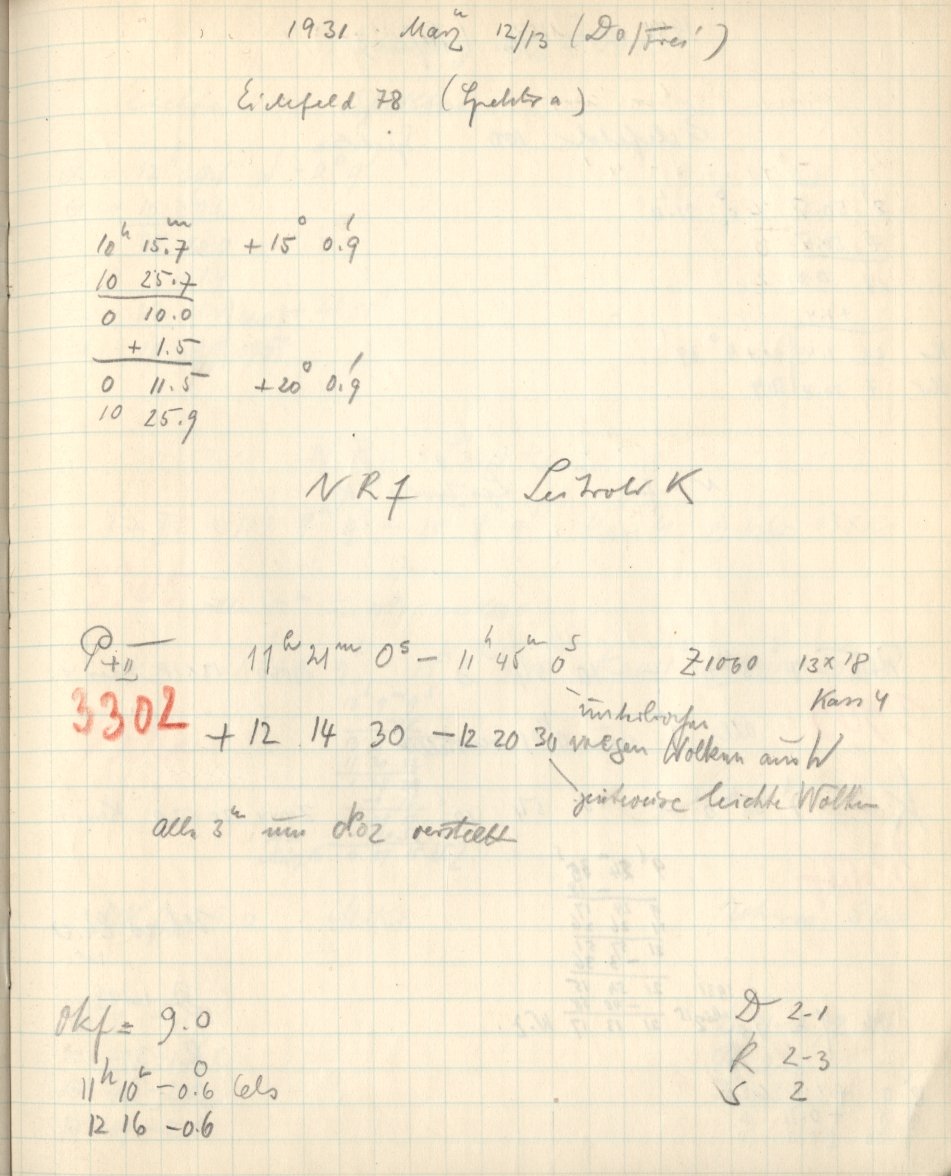 1931 März 12/13 (Do/Frei)
Eichfeld 78 (Spektra)
10h 15.m7 +15° 0.'9
10 25.7
0 10.0
+ 1.5
0 11.5 +20° 0.'9
10 25.9
NR 1 K
P+II 11h 21m 0s — 11h 45m 0s Z1060 13x18
3302 unterbrochen Kass 4
+ 12 14 30 — 12 20 30 wegen Wolken aus W
zeitweise leichte Wolken
alle 3m um 0.02 verstellt
Okf = 9.0
11h 10m -0.°6 Cels
12 16 -0.6
D 2-1
R 2-3
S 2